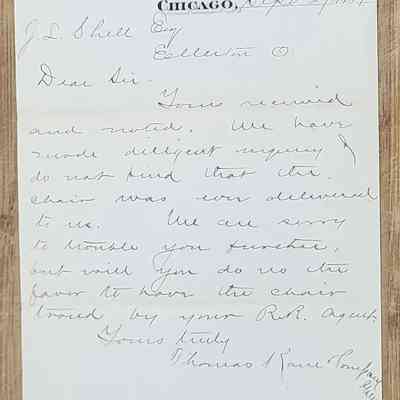 CHICAGO, Sept
J. L. Shell Esq
Ellerton O
Dear Sir.
Yours received
and noted. We have
made diligent inquiry &
do not find that the
chair was ever delivered
to us. We are sorry
to trouble you further,
but will you do us the
favor to have the chair
traced by your R.R. Agent.
Yours truly
Thomas Kane & Company